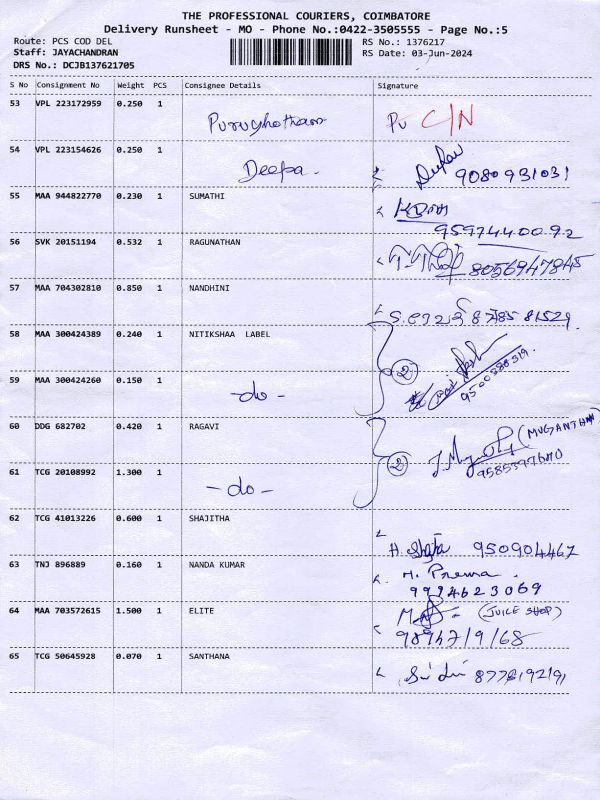 THE PROFESSIONAL COURIERS, COIMBATORE
Delivery Runsheet - MO - Phone No.:0422-3505555 - Page No.:5
Route: PCS COD DEL
Staff: JAYACHANDRAN
DRS No.: DCJB137621705
RS No.: 1376217
RS Date: 03-Jun-2024
S No Consignment No Weight PCS Consignee Details Signature
53 VPL 223172959 0.250 1 Purushotham Pu C/N
54 VPL 223154626 0.250 1 Deepa. 9080931031
55 MAA 944822770 0.230 1 SUMATHI
9597440092
56 SVK 20151194 0.532 1 RAGUNATHAN 8056947845
57 MAA 704302810 0.850 1 NANDHINI 878581529
58 MAA 300424389 0.240 1 NITIKSHAA LABEL
59 MAA 300424260 0.150 1 -do- 2 9500388319.
60 DDG 682702 0.420 1 RAGAVI
61 TCG 20108992 1.300 1 -do- 2
62 TCG 41013226 0.600 1 SHAJITHA H. 950904467
63 TNJ 896889 0.160 1 NANDA KUMAR H. Prema
9994623069
64 MAA 703572615 1.500 1 ELITE (JUICE SHOP)
98947/9/68
65 TCG 50645928 0.070 1 SANTHANA